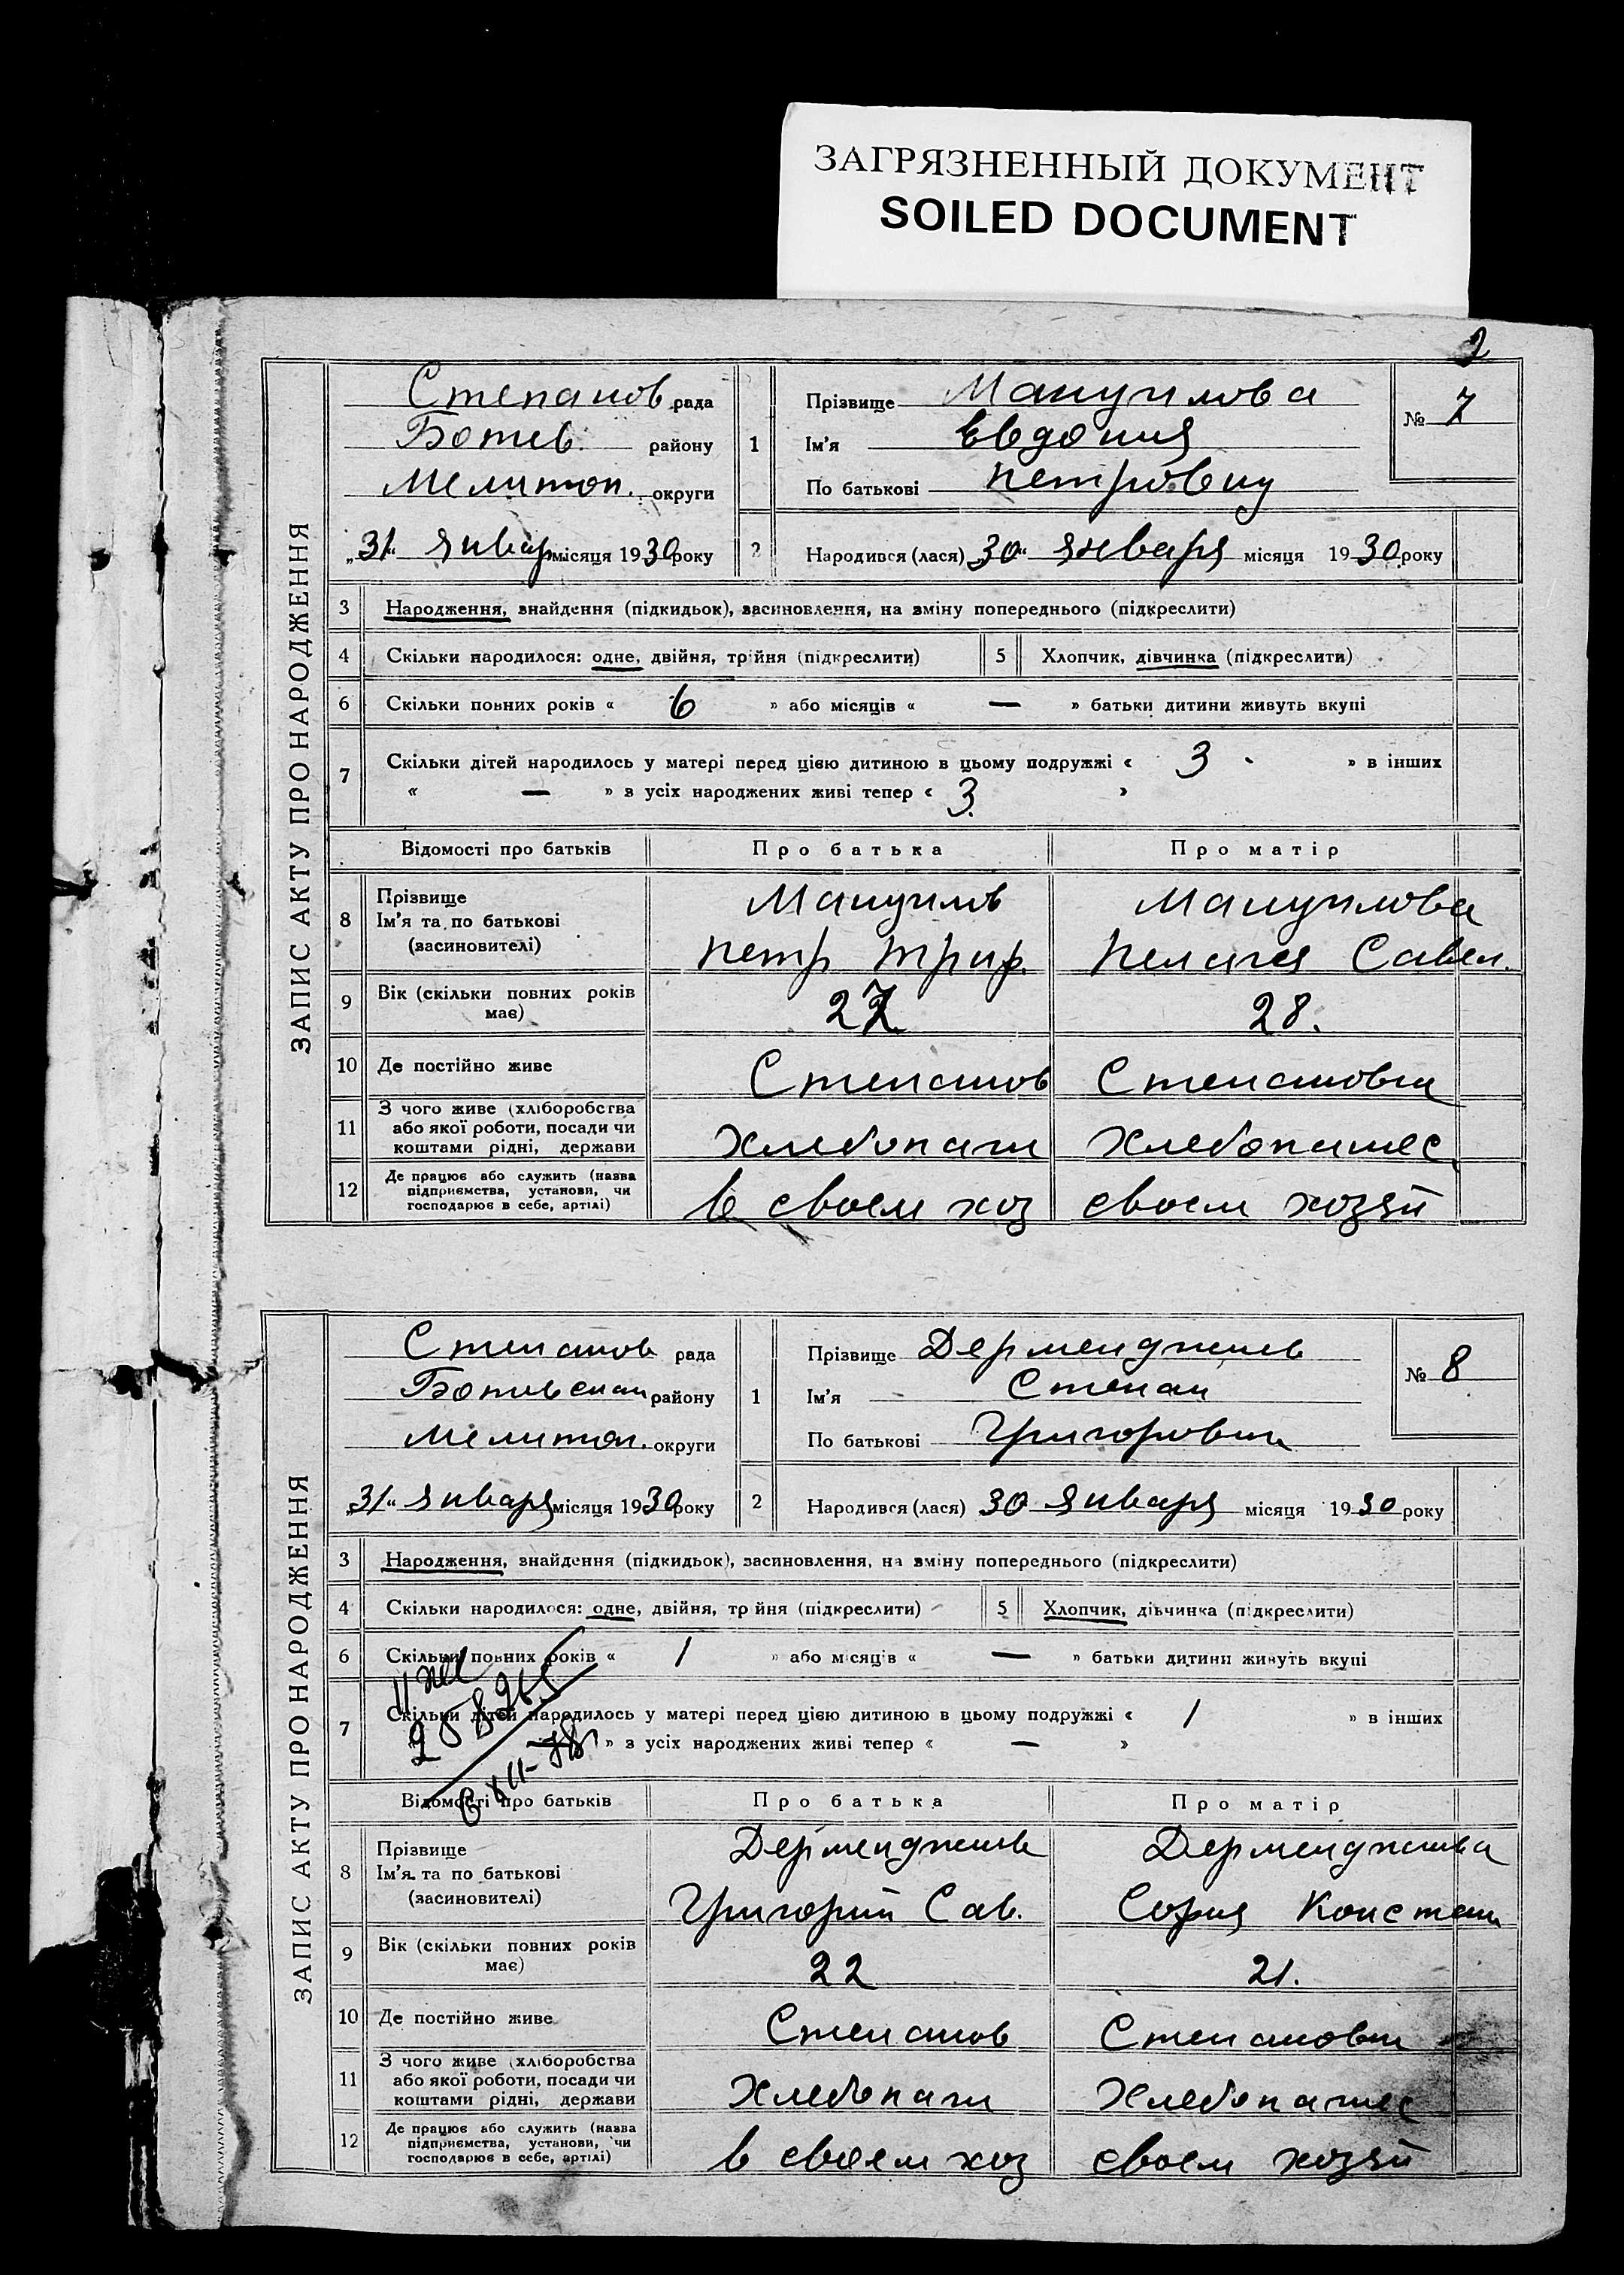 ЗАГРЯЗНЕННЫЙ ДОКУМЕНТ
SOILED DOCUMENT
2
ЗАПИС АКТУ ПРО НАРОДЖЕННЯ
Степанов рада
Ботев. району
Мелитоп. округи
„31“ январ місяця 1930 року
1
Прізвище Мануилова
Ім'я Евдокия
По батькові Петровну
№ 7
2 Народився (лася) 30“ января місяця 1930 року
3 Народження, знайдення (підкидьок), засиновлення, на зміну попереднього (підкреслити)
4 Скільки народилося: одне, двійня, трійня (підкреслити) 5 Хлопчик, дівчинка (підкреслити)
6 Скільки повних років « 6 » або місяців « — » батьки дитини живуть вкупі
7 Скільки дітей народилось у матері перед цією дитиною в цьому подружжі « 3 » в інших
« — » з усіх народжених живі тепер « 3 »
Відомості про батьків Про батька Про матір
8 Прізвище Мануилов Мануилова
Ім'я та по батькові
(засиновителі) Петр Триф. Пелагея Савел.
9 Вік (скільки повних років має) 27 28.
10 Де постійно живе Степанов Степановки
11 З чого живе (хліборобства
або якої роботи, посади чи
коштами рідні, держави Хлебопаш Хлебопашес
12 Де працює або служить (назва
підприємства, установи, чи
господарює в себе, артілі) в своем хоз своем хозяй
ЗАПИС АКТУ ПРО НАРОДЖЕННЯ
Степанов рада
Ботевскаи району
Мелитоп. округи
„31“ января місяця 1930 року
1
Прізвище Дерменджиев
Ім'я Степан
По батькові Григорович
№ 8
2 Народився (лася) 30 января місяця 1930 року
3 Народження, знайдення (підкидьок), засиновлення, на зміну попереднього (підкреслити)
4 Скільки народилося: одне, двійня, трійня (підкреслити) 5 Хлопчик, дівчинка (підкреслити)
6 Скільки повних років « 1 » або місяців « — » батьки дитини живуть вкупі
7 Скільки дітей народилось у матері перед цією дитиною в цьому подружжі « 1 » в інших
» з усіх народжених живі тепер « — »
Відомості про батьків Про батька Про матір
8 Прізвище Дерменджиев Дерменджиева
Ім'я та по батькові
(засиновителі) Григорий Сав. София Констан
9 Вік (скільки повних років має) 22 21.
10 Де постійно живе Степанов Степановки
11 З чого живе (хліборобства
або якої роботи, посади чи
коштами рідні, держави Хлебопаш Хлебопашес
12 Де працює або служить (назва
підприємства, установи, чи
господарює в себе, артілі) в своем хоз своем хозяй